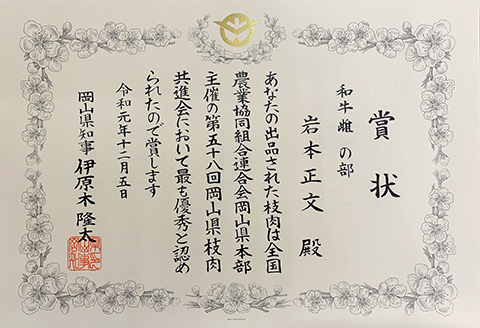 賞状
和牛雌の部
岩本正文 殿
あなたの出品された枝肉は全国
農業協同組合連合会岡山県本部
主催の第五十八回岡山県枝肉
共進会において最も優秀と認め
られたので賞します
令和元年十二月五日
岡山県知事 伊原木 隆太